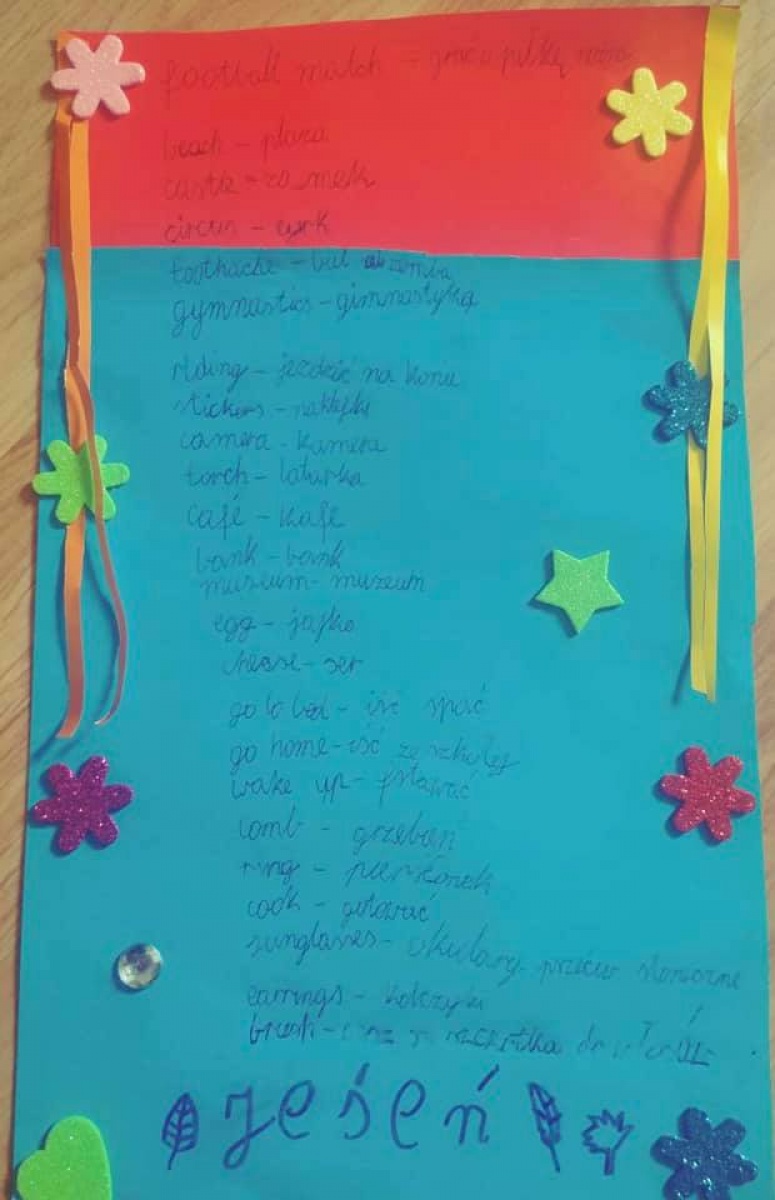 football match = grać w piłkę
beach - plaża
castle = zamek
circus - cyrk
toothache - bul zemba
gymnastics - gimnastyka
riding - jezdzić na koniu
stickers - naklejki
camera - kamera
torch - latarka
café - kafe
bank - bank
museum - muzeum
egg - jajko
cheese - ser
go to bed - iść spać
go home - iść ze szkołej
wake up - fstawać
comb - grzebień
ring - pierścionek
cook - gotować
sunglasses - okulary przeciw słoneczne
earrings - kolczyki
brush - szczotka do
Jesień